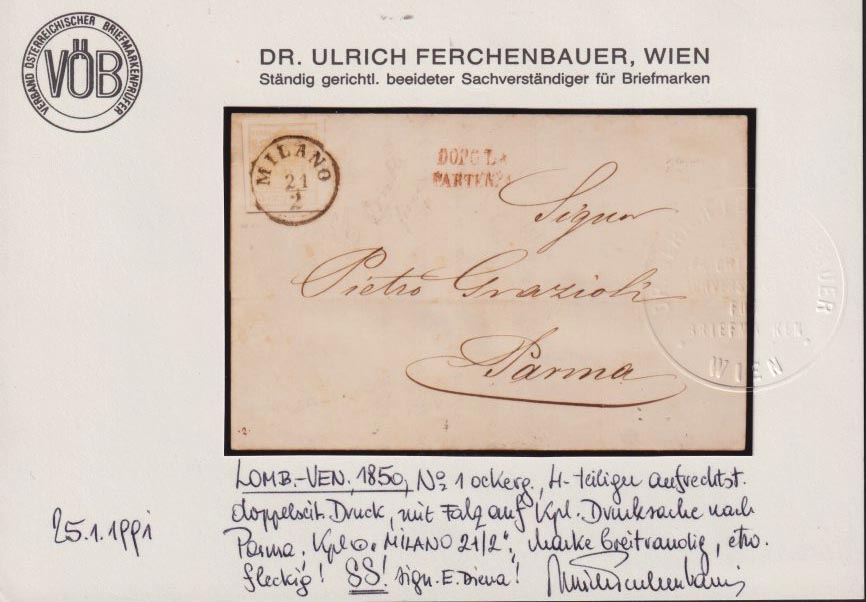 VERBAND ÖSTERREICHISCHER BRIEFMARKENPRÜFER
VÖB
DR. ULRICH FERCHENBAUER, WIEN
Ständig gerichtl. beeideter Sachverständiger für Briefmarken
MILANO
21
2
DOPO LA
PARTENZA
Signor
Pietro Grazioli
Parma
BRIEFMARKEN
WIEN
LOMB.-VEN. 1850, No 1 ockerg., 4-teiliger aufrechtst.
doppelseit. Druck, mit Falz auf Kpl. Drucksache nach
25.1.1991
Parma. Kpl. "MILANO 21/2", Marke breitrandig, etw.
fleckig! SS! sign. E. Diena!